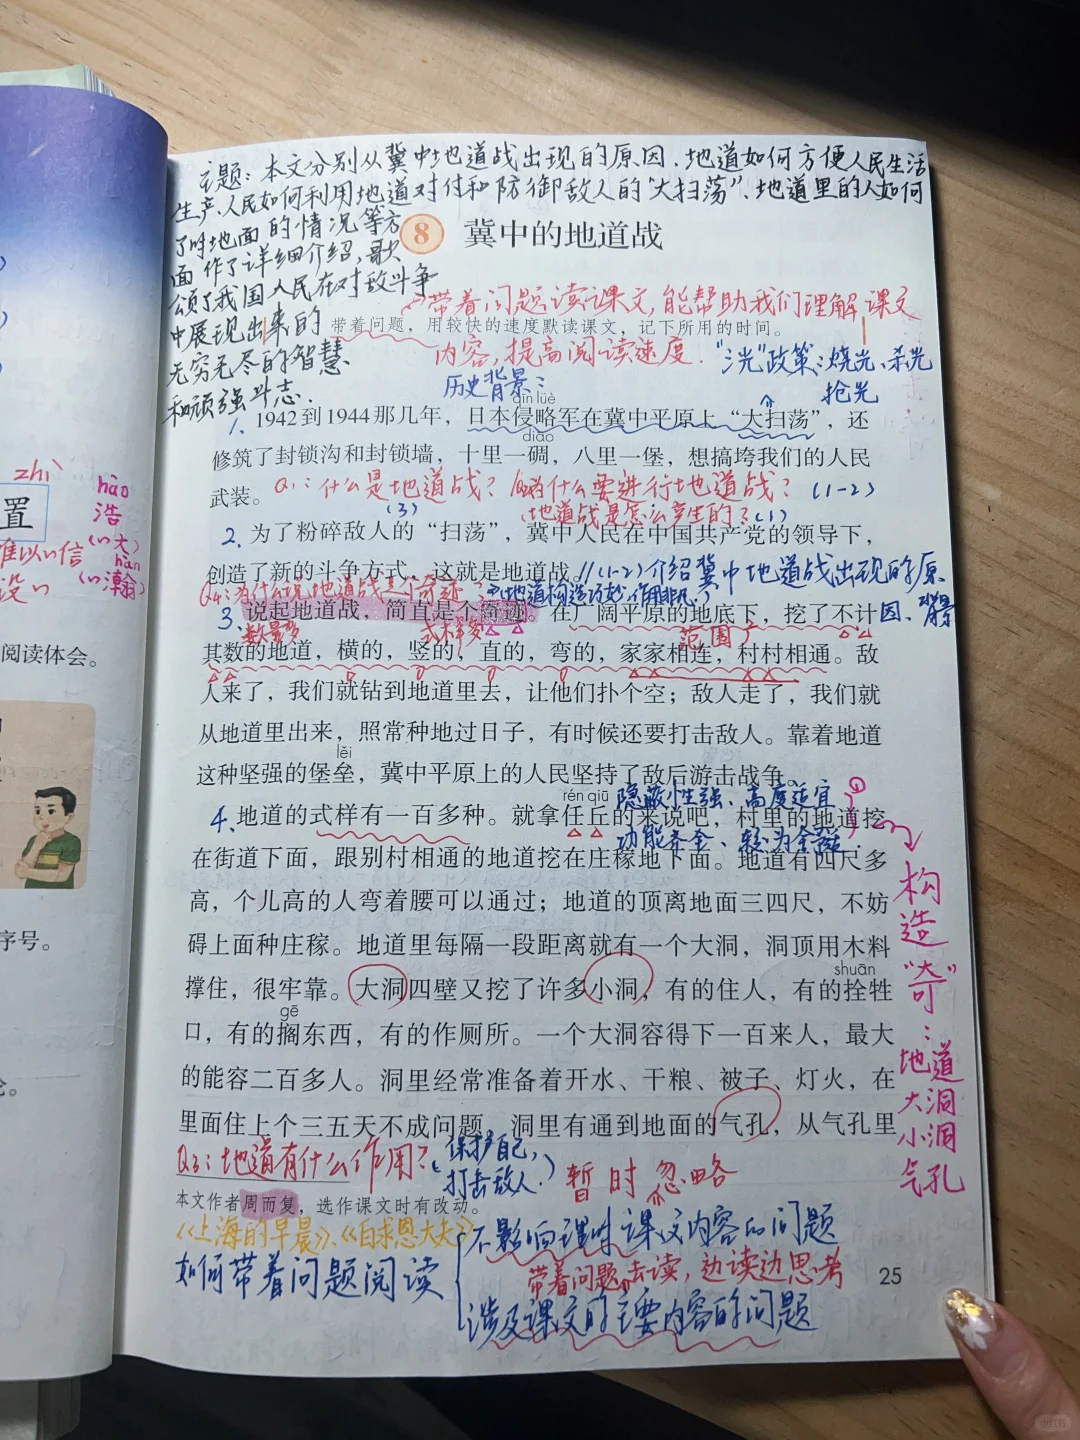 主题：本文分别从冀中地道战出现的原因、地道如何方便人民生活
生产、人民如何利用地道对付和防御敌人的"大扫荡"、地道里的人如何
了解地面的情况等方
面作了详细介绍，歌
颂了我国人民在对敌斗争
中展现出来的
无穷无尽的智慧
和顽强斗志.
8 冀中的地道战
带着问题读课文，能帮助我们理解课文
带着问题，用较快的速度默读课文，记下所用的时间。
内容，提高阅读速度.
"三光"政策：烧光、杀光
抢光
历史背景：
qīn lüè
1. 1942到1944那几年，日本侵略军在冀中平原上“大扫荡”，还
diāo
修筑了封锁沟和封锁墙，十里一碉，八里一堡，想搞垮我们的人民
武装。
Q1：什么是地道战？为什么要进行地道战？(1-2)
(3)
地道战是怎么产生的？(1)
2. 为了粉碎敌人的“扫荡”，冀中人民在中国共产党的领导下，
创造了新的斗争方式，这就是地道战。
//(1-2)介绍冀中地道战出现的原
因、背景
Q4：为什么说地道战是个奇迹？
(地道构造巧妙，作用非凡)
3. 说起地道战，简直是个奇迹。在广阔平原的地底下，挖了不计
数量多
式样多
范围广
其数的地道，横的，竖的，直的，弯的，家家相连，村村相通。敌
人来了，我们就钻到地道里去，让他们扑个空；敌人走了，我们就
从地道里出来，照常种地过日子，有时候还要打击敌人。靠着地道
lěi
这种坚强的堡垒，冀中平原上的人民坚持了敌后游击战争。
rén qiū
隐蔽性强、高度适宜
4. 地道的式样有一百多种。就拿任丘的来说吧，村里的地道挖
功能齐全、较为全面.
在街道下面，跟别村相通的地道挖在庄稼地下面。地道有四尺多
高，个儿高的人弯着腰可以通过；地道的顶离地面三四尺，不妨
碍上面种庄稼。地道里每隔一段距离就有一个大洞，洞顶用木料
shuān
撑住，很牢靠。大洞四壁又挖了许多小洞，有的住人，有的拴牲
gē
口，有的搁东西，有的作厕所。一个大洞容得下一百来人，最大
的能容二百多人。洞里经常准备着开水、干粮、被子、灯火，在
里面住上个三五天不成问题。洞里有通到地面的气孔，从气孔里
构造"奇"：
地道
大洞
小洞
气孔
Q3：地道有什么作用？
(保护自己，
打击敌人.)
暂时忽略
本文作者周而复，选作课文时有改动。
《上海的早晨》、《白求恩大夫》
如何带着问题阅读
不影响理解课文内容的问题
带着问题去读，边读边思考
涉及课文的主要内容的问题
25
zhì
置
hào
浩
(~大)
hàn
(~瀚)
难以~信
设~
阅读体会。
序号。